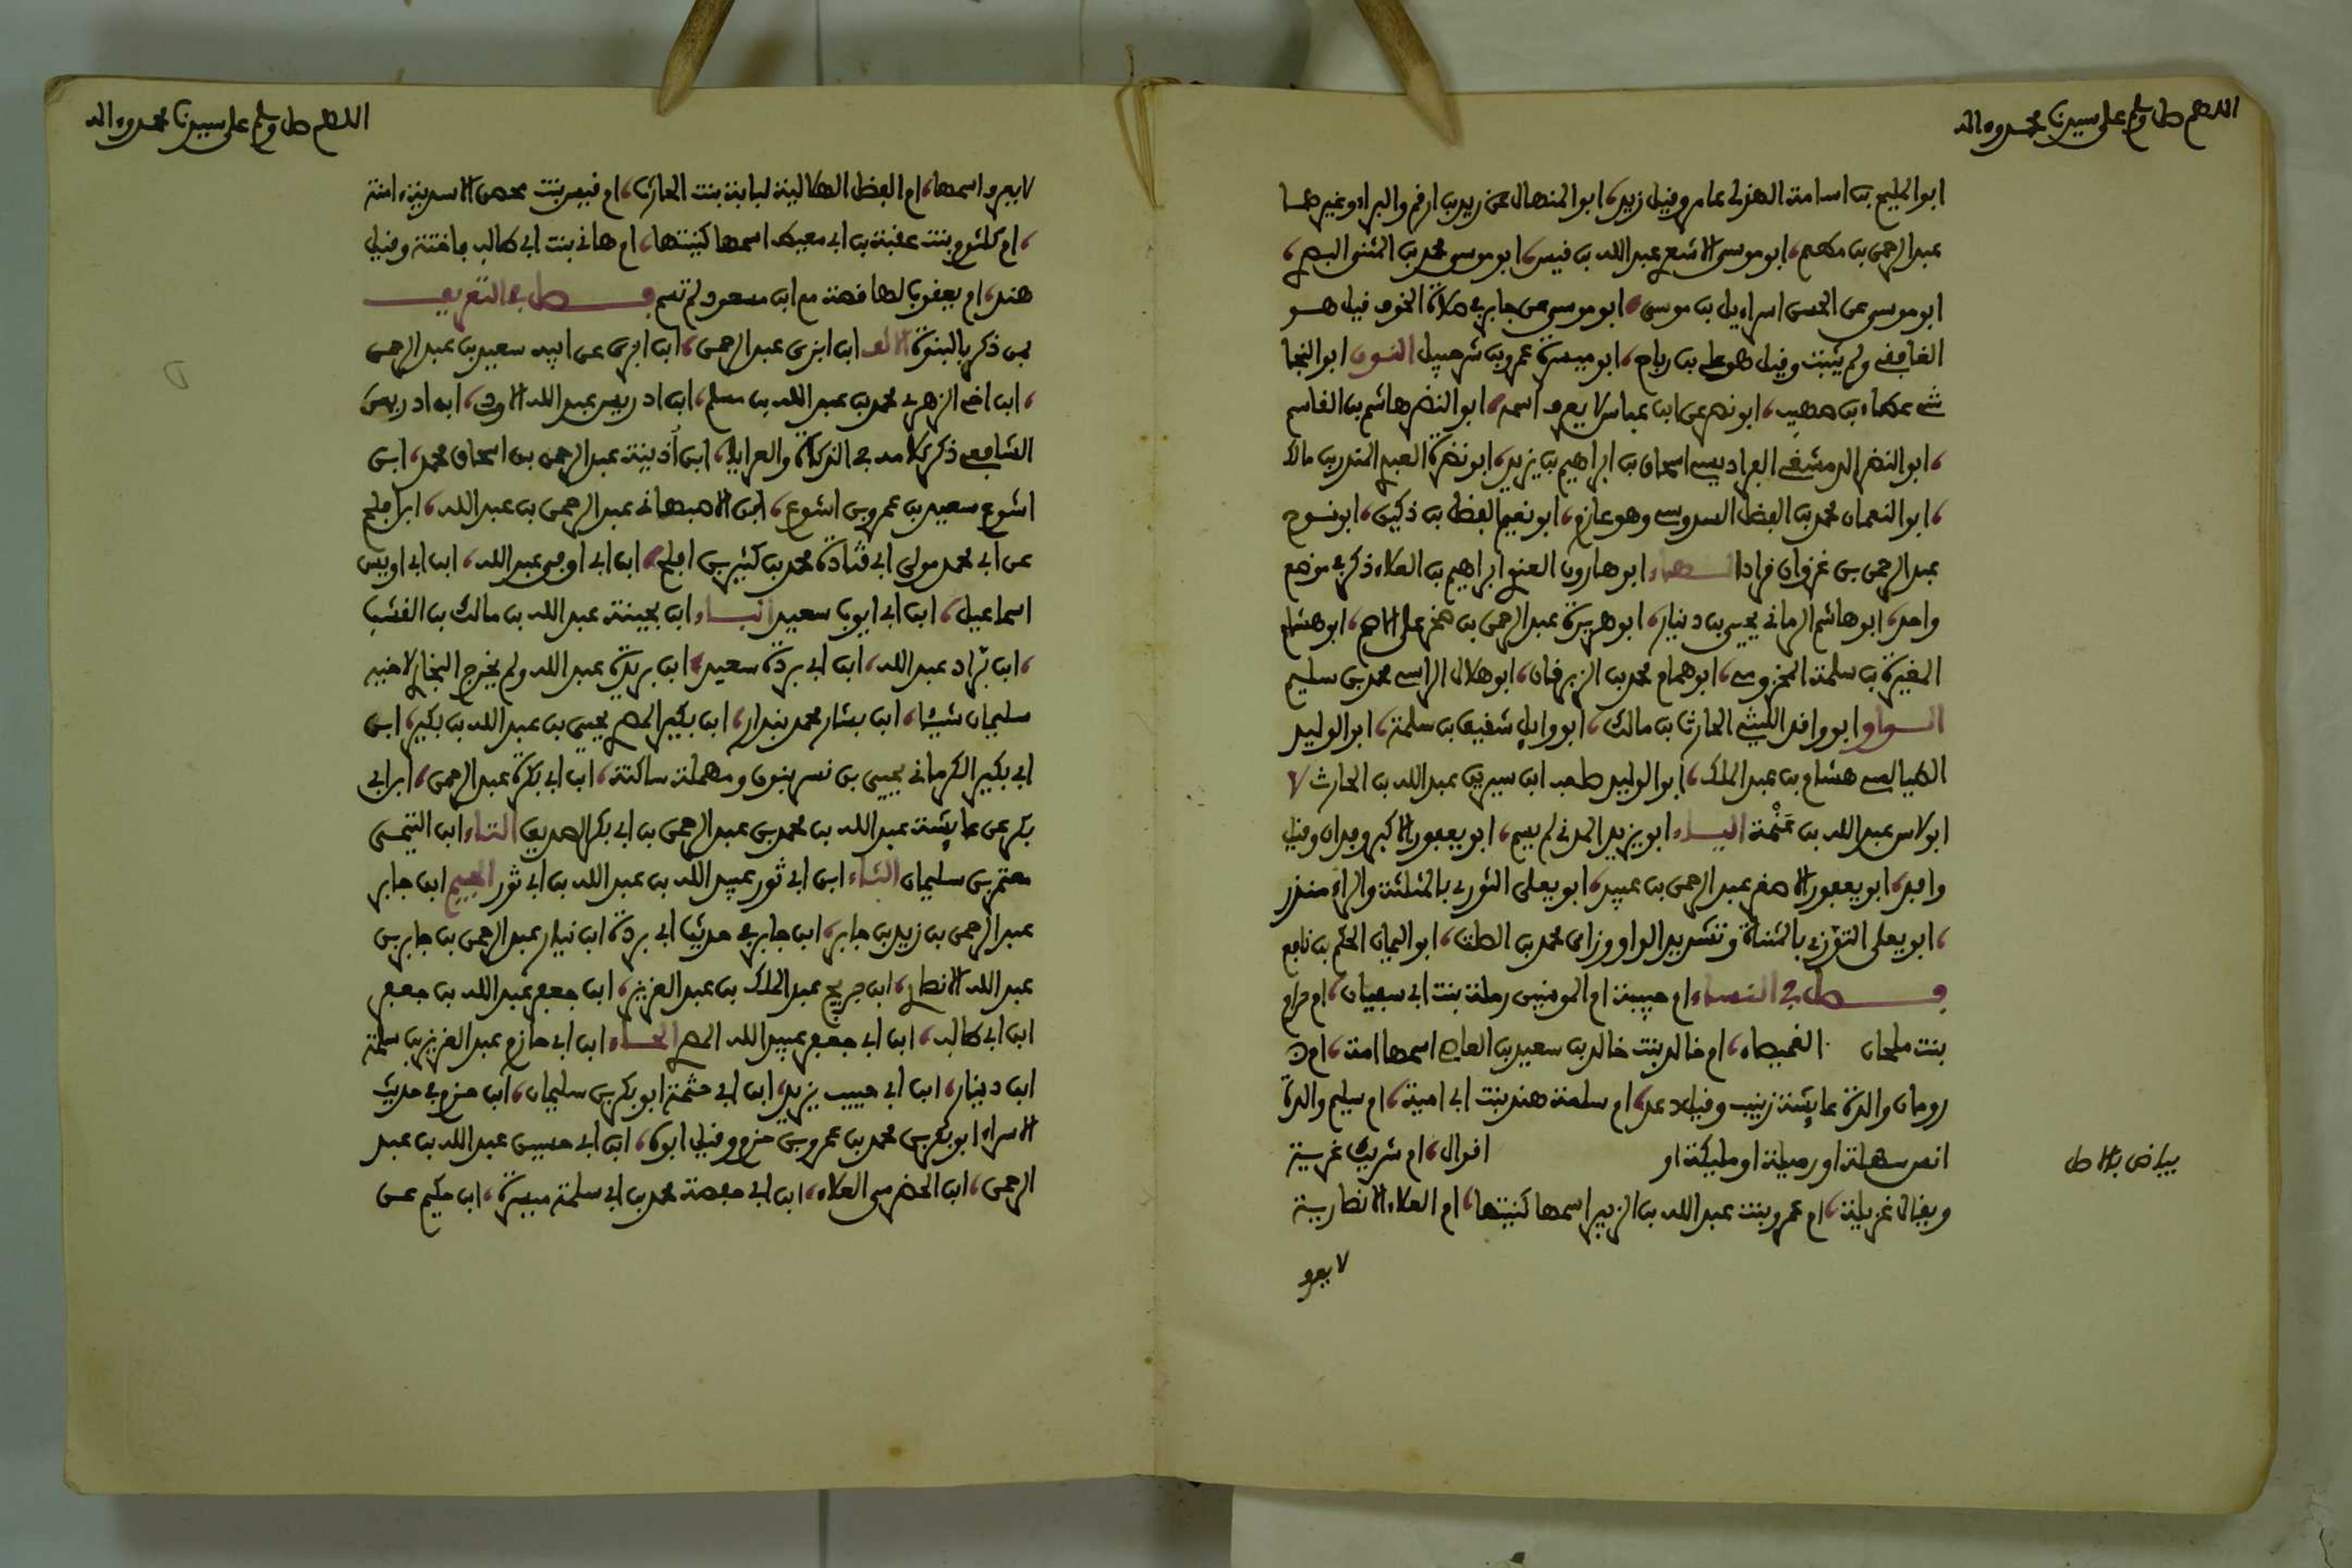 اللهم صل وسلم على سيدنا محمد وءاله
ابو المليح بن اسامة الهذلي عامر وقيل زيد، ابو المنهال عن زيد بن ارقم والبراء وغيرهما
عبد الرحمن بن مطعم، ابو موسى الاشعري عبد الله بن قيس، ابو موسى محمد بن المثنى البصري،
ابو موسى عن الحسن اسراءيل بن موسى، ابو موسى عن جابر في صلاة الخوف قيل هو
الغافقي ولم يثبت وقيل هو علي بن رباح، ابو ميسرة عمرو بن شرحبيل النون ابو النجا
شي عطاء بن صهيب، ابو نصر عن ابن عباس لا يعرف اسمه، ابو النضر هاشم بن القاسم
، ابو النضر الدمشقي الفراديسي اسحاق بن ابراهيم بن يزيد، ابو نضرة العبدي المنذر بن مالك
، ابو النعمان محمد بن الفضل السدوسي وهو عارم، ابو نعيم الفضل بن دكين، ابو نوح
عبد الرحمن بن غزوان قراد الهاء ابو هارون الغنوي ابراهيم بن العلاء ذكر في موضع
واحد، ابو هاشم الرماني يحيى بن دينار، ابو هريرة عبد الرحمن بن صخر على الاصح، ابو هشام
المغيرة بن سلمة المخزومي، ابو همام محمد بن الزبرقان، ابو هلال الراسبي محمد بن سليم
الواو ابو واقد الليثي الحارث بن مالك، ابو وايل شقيق بن سلمة، ابو الوليد
الطيالسي هشام بن عبد الملك، ابو الوليد صاحب ابن سيرين عبد الله بن الحارث لا
ابو لاس عبد الله بن عنمة الياء ابو يزيد المدني لم يسم، ابو يعفور الاكبر وقدان وقيل
واقد، ابو يعفور الاصغر عبد الرحمن بن عبيد، ابو يعلى الثوري بالمثلثة والراء منذر
، ابو يعلى التوزي بالمثناة وتشديد الواو وزاي محمد بن الصلت، ابو اليمان الحكم بن نافع
فصل في النساء ام حبيبة ام المومنين رملة بنت ابي سفيان، ام حرام
بنت ملحان الغميصاء، ام خالد بنت خالد بن سعيد بن العاصي اسمها امة، ام
رومان والدة عايشة زينب وقيل دعد، ام سلمة هند بنت ابي امية، ام سليم والدة
انس سهلة او رميلة او مليكة او اقوال، ام شريك غزية
بياض بالاصل
ويقال غزيلة، ام عمرو بنت عبد الله بن الزبير اسمها كنيتها، ام العلاء الانصارية
لا يعرف
اللهم صل وسلم على سيدنا محمد وءاله
لا يعرف اسمها، ام الفضل الهلالية لبابة بنت الحارث، ام قيس بنت محصن الاسدية ءامنة
، ام كلثوم بنت عقبة بن ابي معيط اسمها كنيتها، ام هاني بنت ابي طالب فاختة وقيل
هند، ام يعقوب لها قصة مع ابن مسعود لم تسم فصل في التعريف
بمن ذكر بالبنوة الالف ابن ابزى عبد الرحمن، ابن ابزى عن ابيه سعيد بن عبد الرحمن
، ابن اخي الزهري محمد بن عبد الله بن مسلم، ابن ادريس عبد الله الاودي، ابن ادريس
الشافعي ذكر كلامه في الزكاة والعرايا، ابن أذينة عبد الرحمن بن اسحاق محمد، ابن
اشوع سعيد بن عمرو بن اشوع، ابن الاصبهاني عبد الرحمن بن عبد الله، ابن افلح
عن ابي محمد مولى ابي قتادة محمد بن كثير بن افلح، ابن ابي اوفى عبد الله، ابن ابي اويس
اسماعيل، ابن ابي ايوب سعيد الباء ابن بحينة عبد الله بن مالك بن القشب
، ابن براد عبد الله، ابن ابي بردة سعيد، ابن بريدة عبد الله ولم يخرج البخاري لاخيه
سليمان شيئا، ابن بشار محمد بندار، ابن بكير المصري يحيى بن عبد الله بن بكير، ابن
ابي بكير الكرماني يحيى بن نسر بنون ومهملة ساكنة، ابن ابي بكرة عبد الرحمن، ابن ابي
بكر عن عايشة عبد الله بن محمد بن عبد الرحمن بن ابي بكر الصديق التاء ابن التيمي
معتمر بن سليمان الثاء ابن ابي ثور عبيد الله بن عبد الله بن ابي ثور الجيم ابن جابر
عبد الرحمن بن زيد بن جابر، ابن جابر في حديث ابي بردة ابن نيار عبد الرحمن بن جابر بن
عبد الله الانصاري، ابن جريج عبد الملك بن عبد العزيز، ابن جعفر عبد الله بن جعفر
ابن ابي طالب، ابن ابي جعفر عبيد الله المصري الحاء ابن ابي حازم عبد العزيز بن سلمة
ابن دينار، ابن ابي حبيب يزيد، ابن ابي حثمة ابو بكر بن سليمان، ابن حزم في حديث
الاسراء ابو بكر بن محمد بن عمرو بن حزم وقيل ابوه، ابن ابي حسين عبد الله بن عبد
الرحمن، ابن الحضرمي العلاء، ابن ابي حفصة محمد بن ابي سلمة ميسرة، ابن حكيم عن